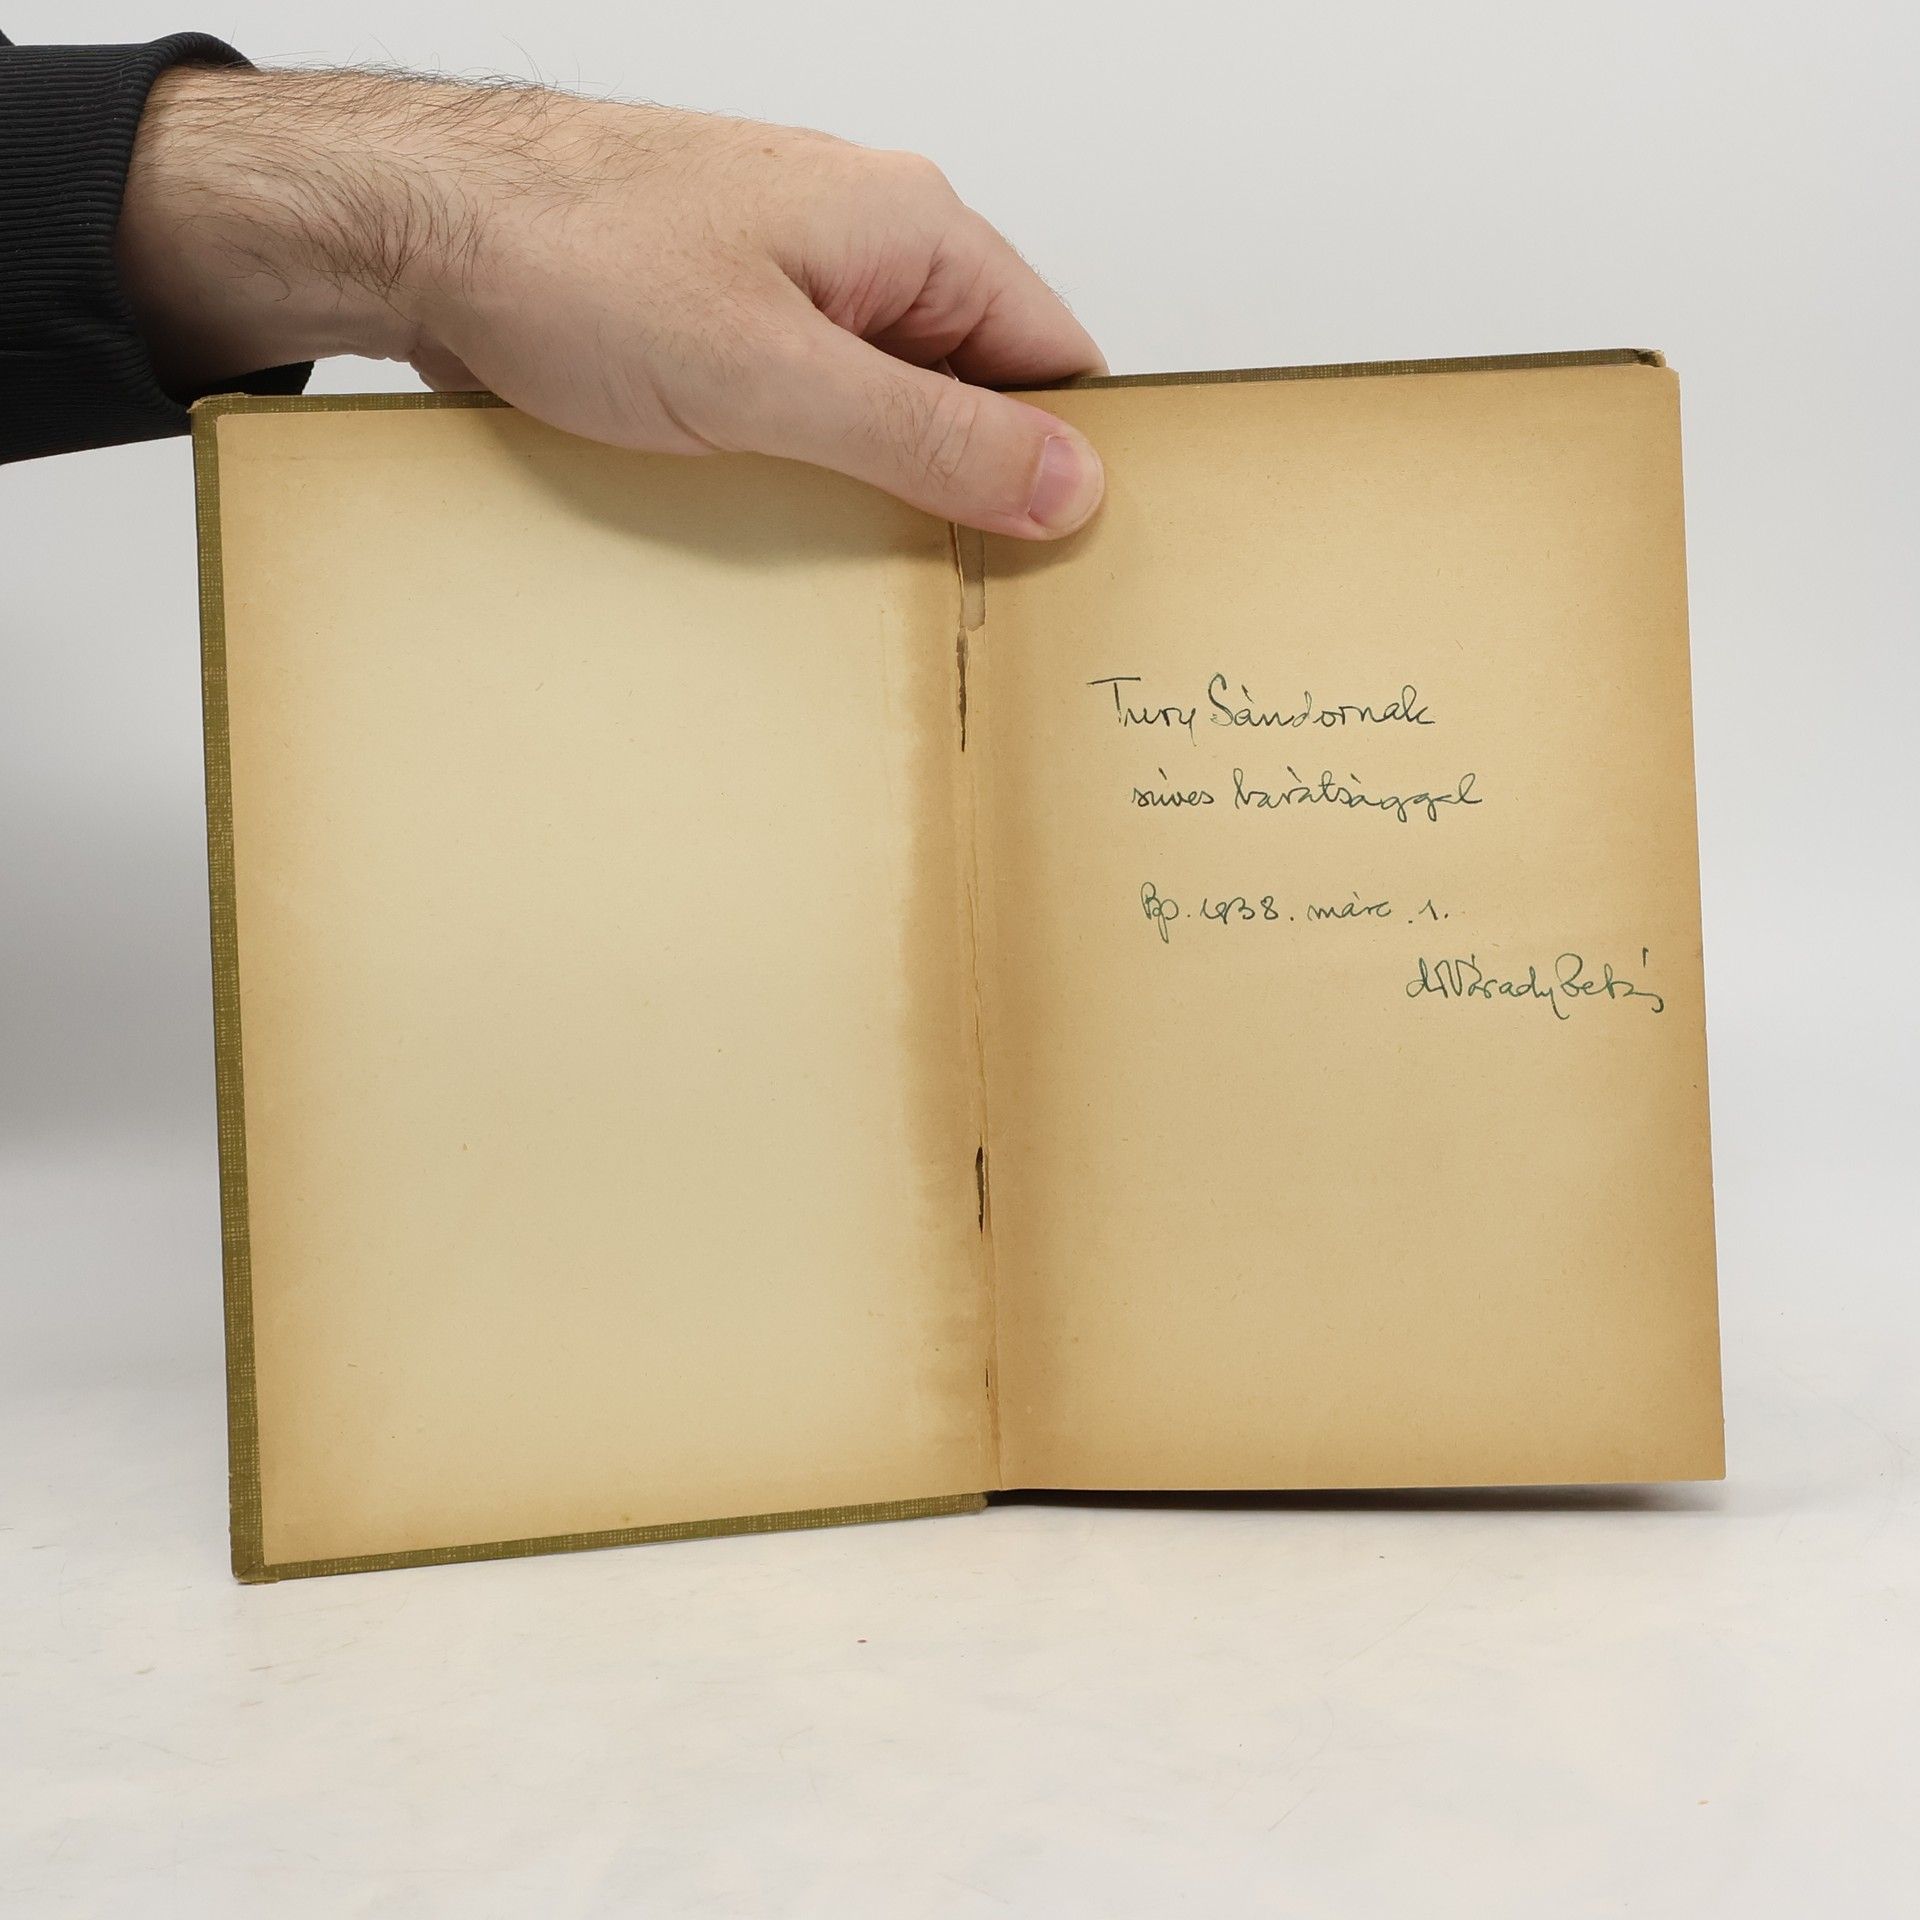 Tury Sándornak
szíves barátsággal
Bp. 1938. márc. 1.
dr Várady